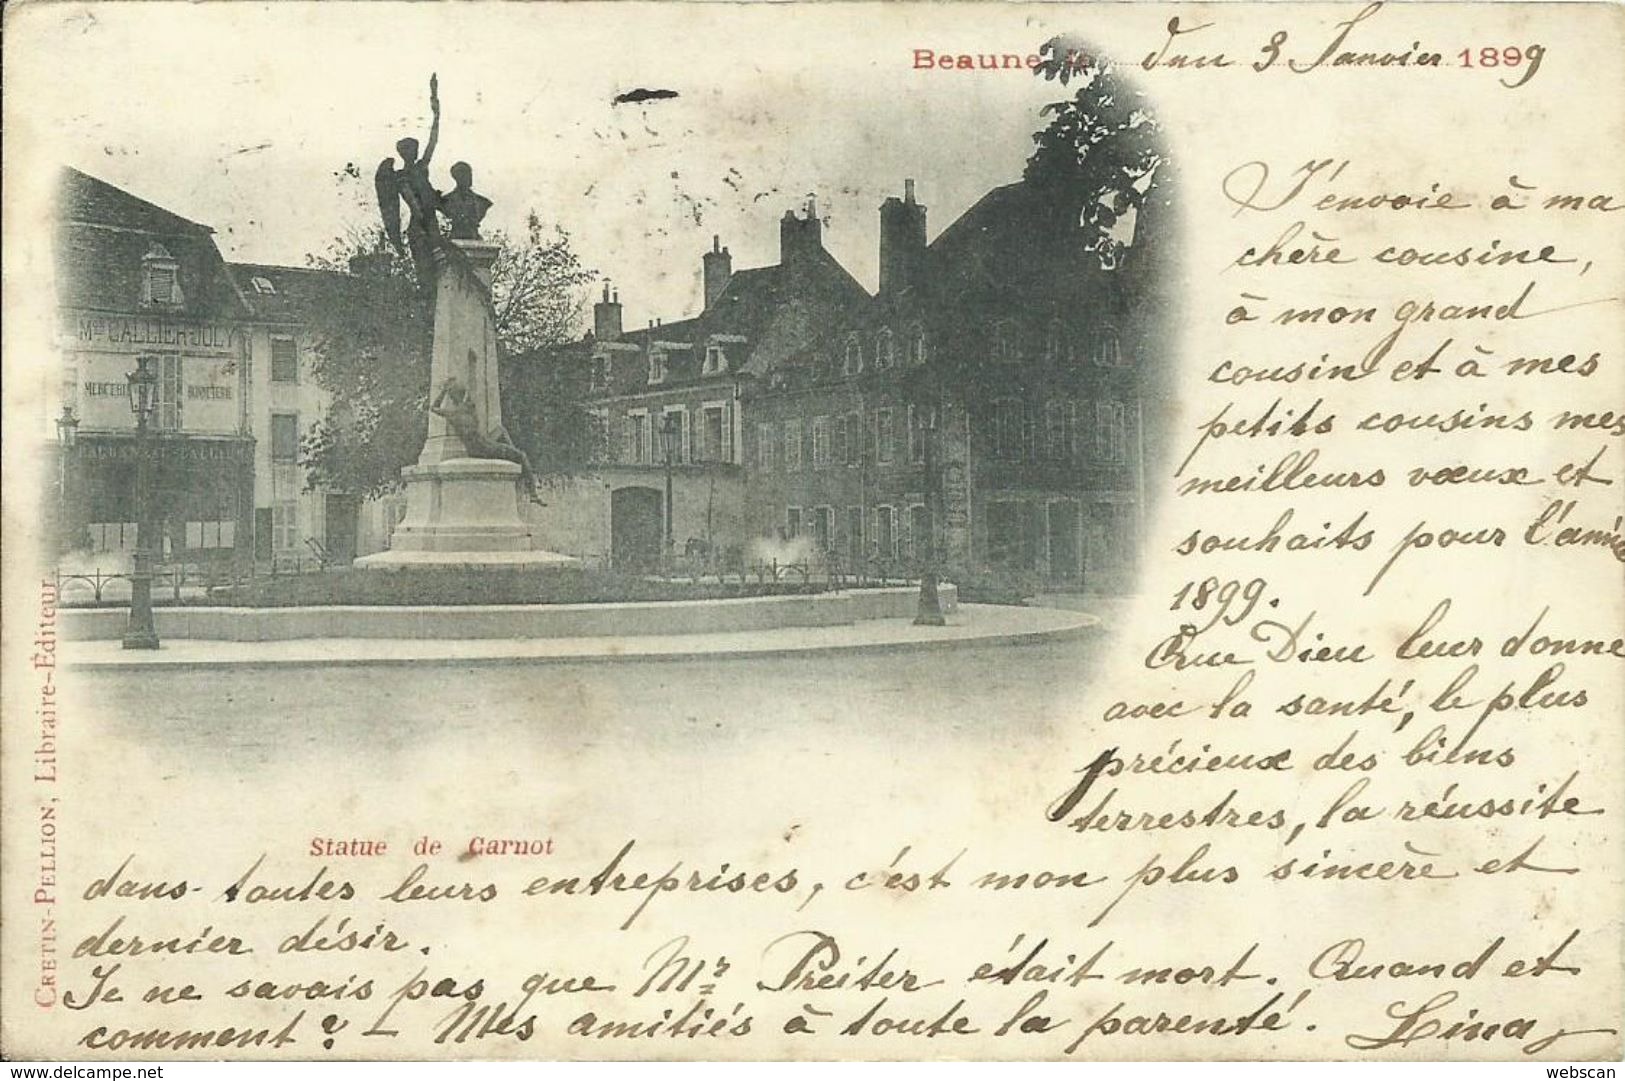 Beaune, le den 3 Janvier 1899
J'envoie à ma
chère cousine,
à mon grand
cousin et à mes
petits cousins mes
meilleurs vœux et
souhaits pour l'année
1899.
Que Dieu leur donne
avec la santé, le plus
précieux des biens
terrestres, la réussite
dans toutes leurs entreprises, c'est mon plus sincère et
dernier désir.
Je ne savais pas que Mr Preiter était mort. Quand et
comment? - Mes amitiés à toute la parenté. Lina
Statue de Carnot
CRETIN-PELLION, Libraire-Éditeur
GALLIER-JOLY
MERCERIE BONNETERIE
www.delcampe.net
webscan